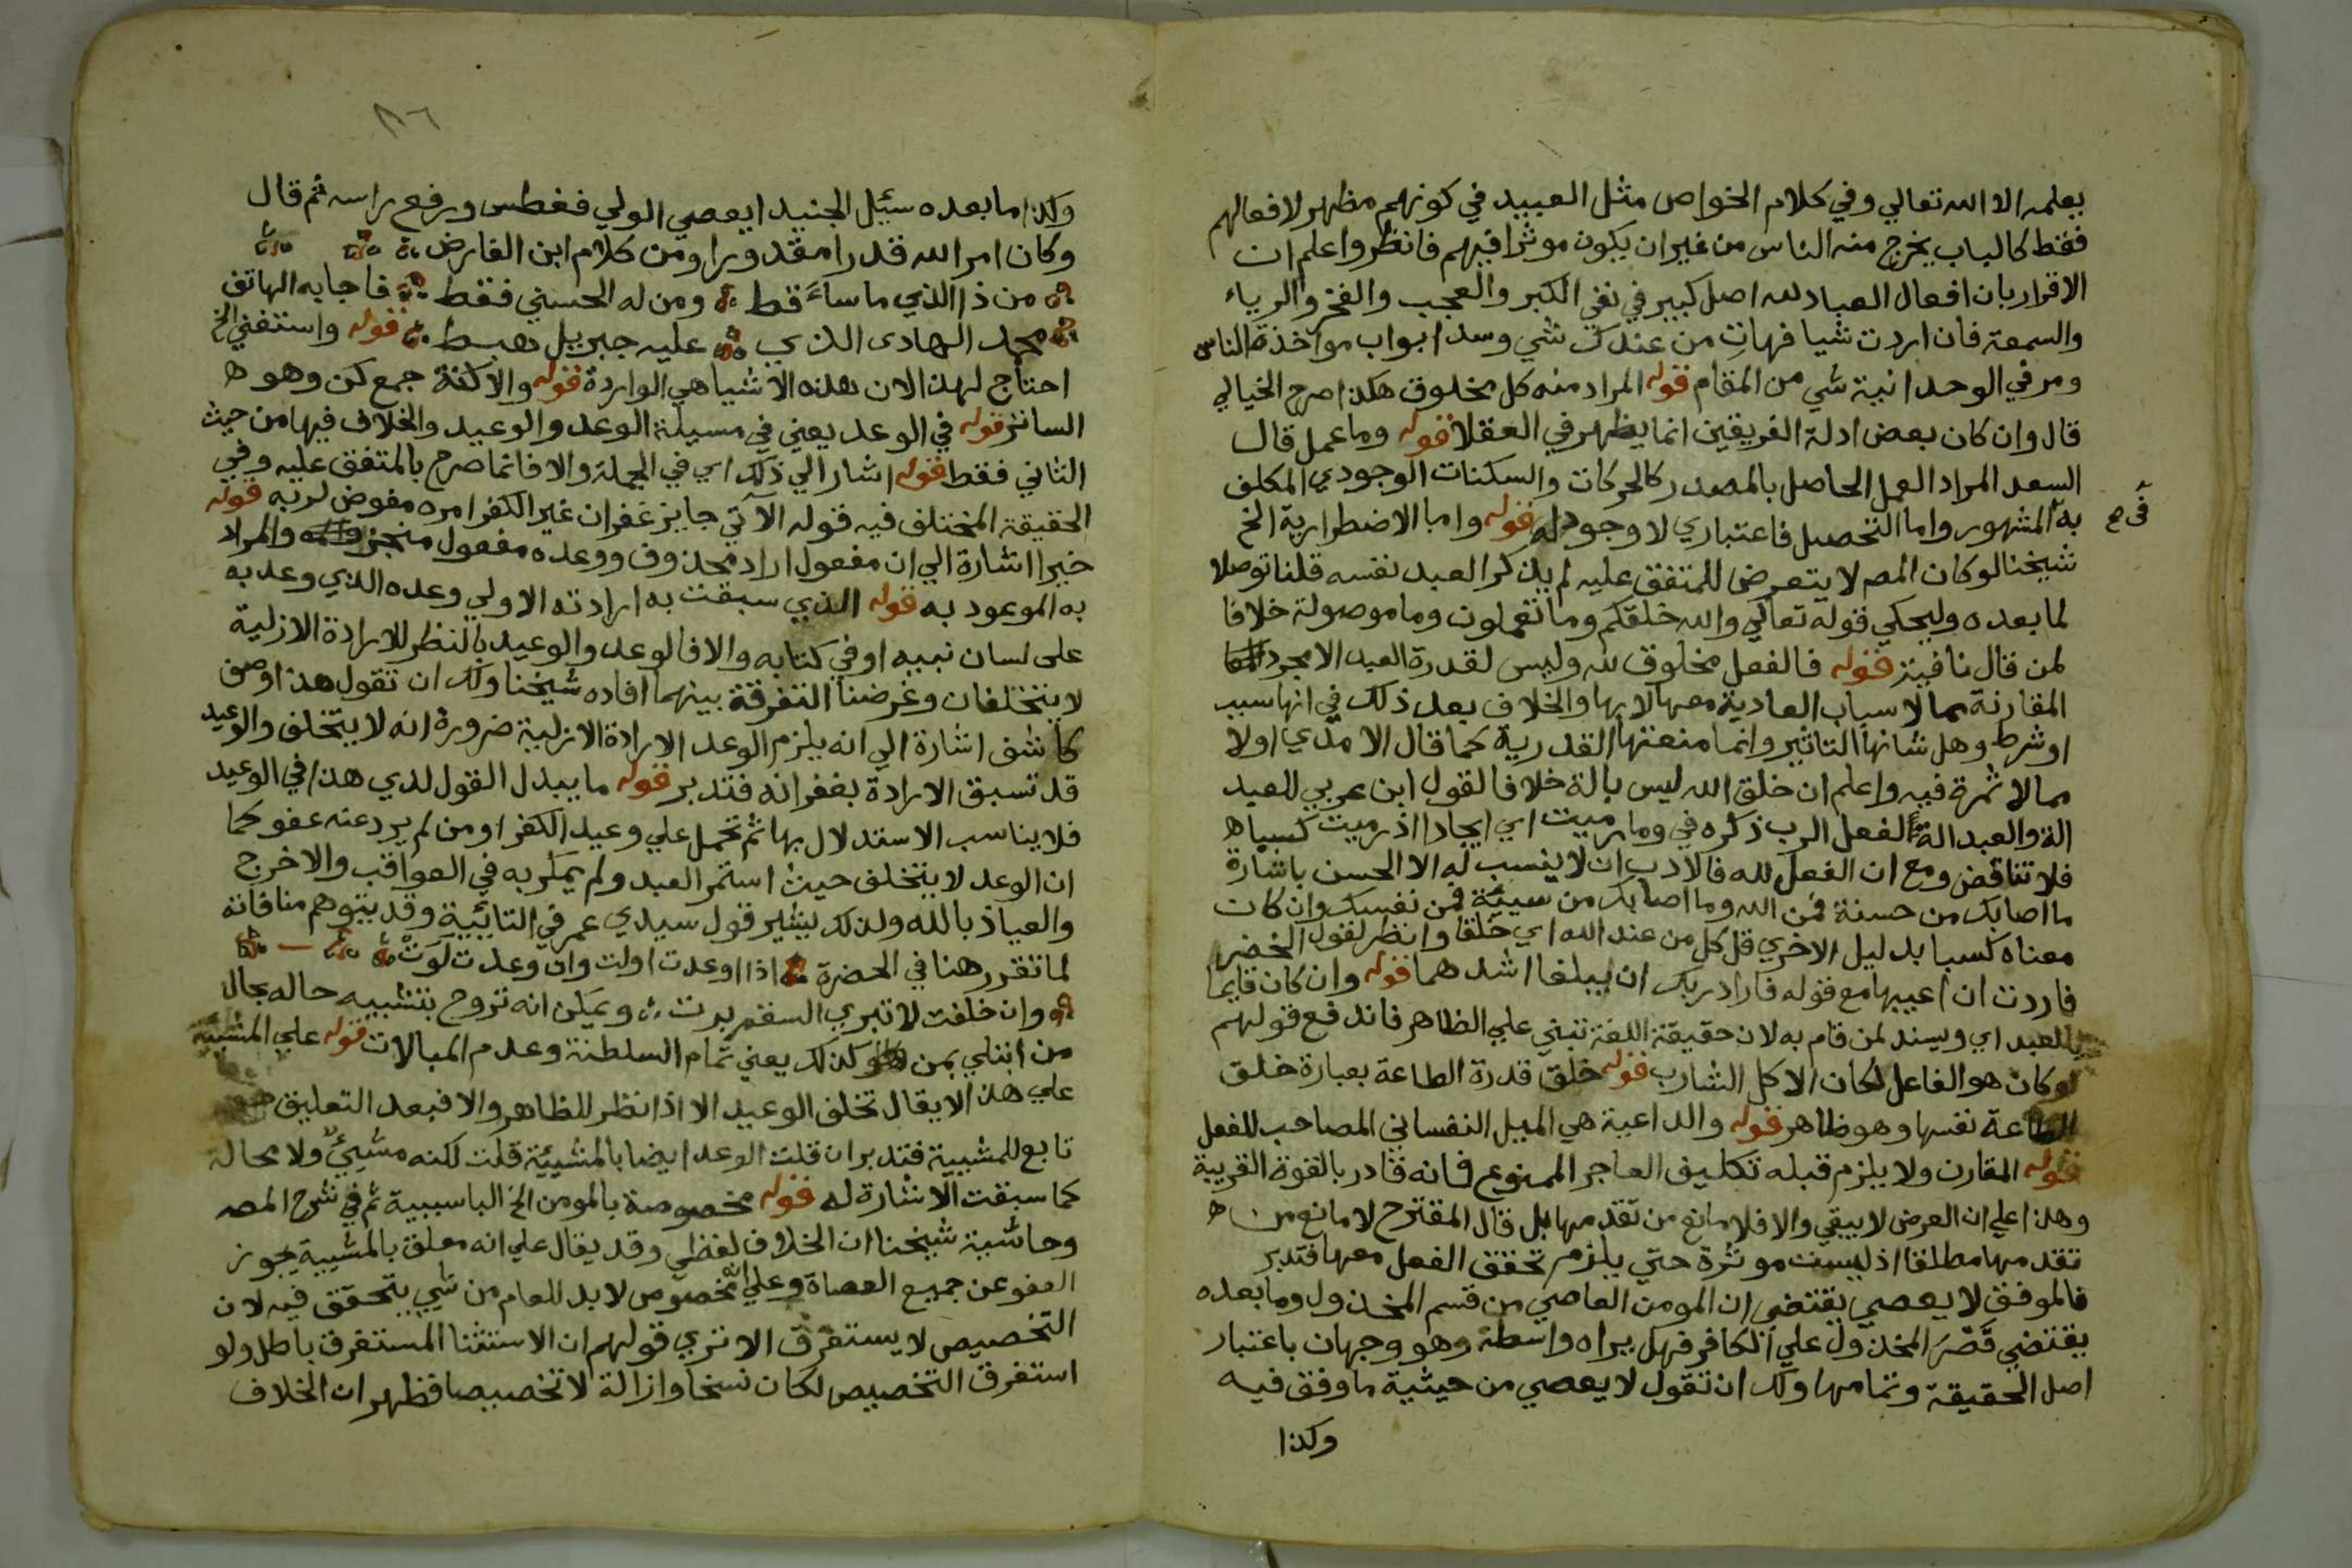 يعلمه الا الله تعالي وفي كلام الخواص مثل العبيد في كونهم مظهر لافعالهم
فقط كالباب يخرج منه الناس من غير ان يكون موثرا فيهم فانظر واعلم ان
الاقرار بان افعال العباد لله اصل كبير في نفي الكبر والعجب والفخر والرياء
والسمعة فان اردت شيا فهات من عندك شي وسد ابواب مواخذة الناس
ومر في الوحدانية شي من المقام قوله المراد منه كل مخلوق هكذا صرح الخيالي
قال وان كان بعض ادلة الفريقين انما يظهر في العقلا قوله وما عمل قال
السعد المراد العمل الحاصل بالمصدر كالحركات والسكنات الوجودي المكلف
به المشهور واما التحصيل فاعتباري لا وجود له قوله واما الاضطرارية الخ
شيخنا لو كان المصر لا يتعرض للمتفق عليه لم يذكر العبد نفسه قلنا توصلا
لما بعده وليحكي قوله تعالي والله خلقكم وما تعملون وما موصولة خلافا
لمن قال نافية قوله فالفعل مخلوق لله وليس لقدرة العبد الا مجرد
المقارنة كما لاسباب العادية معها لا بها والخلاف بعد ذلك في انها سبب
او شرط وهل شانها التاثير وانما منعتها القدرية كما قال الامدي اولا
مما لا ثمرة فيه واعلم ان خلق الله ليس بالة خلافا لقول ابن عربي للعبد
الة والعبد الة لفعل الرب ذكره في وما رميت اي ايجادا اذ رميت كسبا ه
فلا تناقض ومع ان الفعل لله فالادب ان لا ينسب له الا الحسن باشارة
ما اصابك من حسنة فمن الله وما اصابك من سيئة فمن نفسك وان كان
معناه كسبا بدليل الاخري قل كل من عند الله اي خلقا وانظر لقول الخضر
فاردت ان اعيبها مع قوله فاراد ربك ان يبلغا اشدهما قوله وان كان قايما
بالعبد اي ويسند لمن قام به لان حقيقة اللغة تنبني علي الظاهر فاندفع قولهم
لو كان هو الفاعل لكان الاكل الشارب قوله خلق قدرة الطاعة بعبارة خلق
الطاعة نفسها وهو ظاهر قوله والداعية هي الميل النفساني المصاحب للفعل
قوله المقارن ولا يلزم قبله تكليف العاجز الممنوع فانه قادر بالقوة القريبة
وهذا علي ان العرض لا يبقي والا فلا مانع من تقدمها بل قال المقترح لا مانع من ه
تقدمها مطلقا اذ ليست موثرة حتي يلزم تحقق الفعل معها فتدبر
فالموفق لا يعصي يقتضي ان المومن العاصي من قسم المخذول وما بعده
يقتضي قصر المخذول علي الكافر فهل يراه واسطة وهو وجهان باعتبار
اصل الحقيقة وتمامها ولك ان تقول لا يعصي من حيثية ما وفق فيه
وكذا
٨٦
وكذا ما بعده سئيل الجنيد ايعصي الولي فغطس ورفع راسه ثم قال
وكان امر الله قدرا مقدورا ومن كلام ابن الفارض
من ذا الذي ما ساء قط ومن له الحسني فقط فاجابه الهاتف
محمد الهادي الذي عليه جبريل هبط قوله واستغني الخ
احتاج لهذا لان هذه الاشيا هي الواردة قوله والاكنة جمع كن وهو ه
الساتر قوله في الوعد يعني في مسيلة الوعد والوعيد والخلاف فيها من حيث
الثاني فقط قوله اشار الي ذلك اي في الجملة والا فانما صرح بالمتفق عليه وفي
الحقيقة المختلف فيه قوله الاتي جايز غفران غير الكفر امره مفوض لربه قوله
خيرا اشارة الي ان مفعول اراد محذوف ووعده مفعول منجز والمراد
به الموعود به قوله الذي سبقت به ارادته الاولي وعده الذي وعد به
على لسان نبيه او في كتابه والا فالوعد والوعيد بالنظر للارادة الازلية
لا يتخلفان وغرضنا التفرقة بينهما افاده شيخنا ولك ان تقول هذا وصف
كاشف اشارة الي انه يلزم الوعد الارادة الازلية ضرورة انه لا يتخلف والوعيد
قد تسبق الارادة بغفرانه فتدبر قوله ما يبدل القول لدي هذا في الوعيد
فلا يناسب الاستدلال بها ثم تحمل علي وعيد الكفر او من لم يرد عنه عفو كما
ان الوعد لا يتخلف حيث استمر العبد ولم يمكر به في العواقب والا خرج
والعياذ بالله ولذلك يشير قول سيدي عمر في التايية وقد يتوهم منافاته
لما تقرر هنا في الحضرة اذا اوعدت اولت وان وعدت لوت
وان خلفت لا تبري السقم برت ويمكن انه تروح بتشبيه حاله بحال
من ابتلي بمن كذلك يعني تمام السلطنة وعدم المبالات قوله علي المشية
علي هذا لا يقال تخلف الوعيد الا اذا نظر للظاهر والا فبعد التعليق هو
تابع للمشيية فتدبر ان قلت الوعد ايضا بالمشيية قلت لكنه مشيئ ولا محالة
كما سبقت الاشارة له قوله مخصوصة بالمومن الخ الباسببية ثم في شرح المصر
وحاشية شيخنا ان الخلاف لفظي وقد يقال علي انه معلق بالمشيية يجوز
العفو عن جميع العصاة وعلي انه مخصوص لا بد للعام من شي يتحقق فيه لان
التخصيص لا يستغرق الا تري قولهم ان الاستثنا المستغرق باطل ولو
استغرق التخصيص لكان نسخا وازالة لا تخصيصا فظهر ان الخلاف